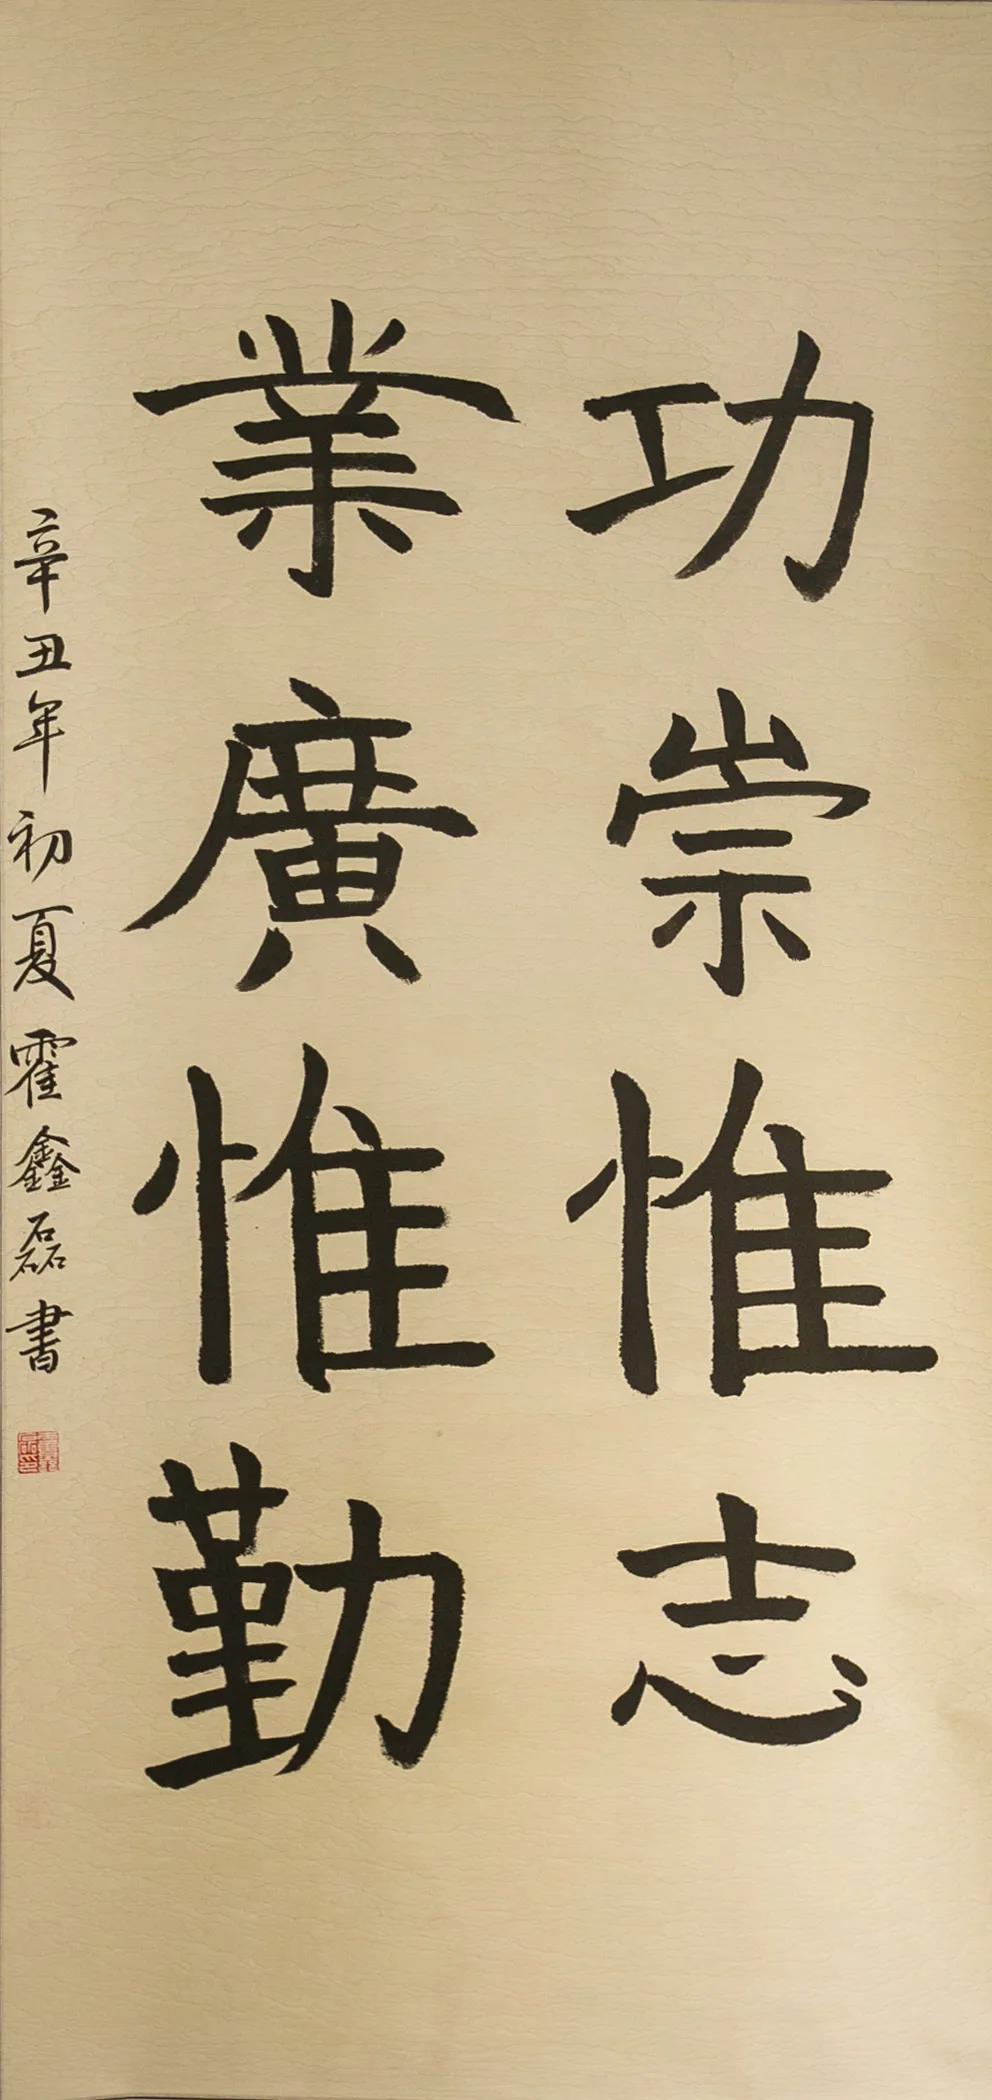 功崇惟志
業廣惟勤
辛丑年初夏霍鑫磊書